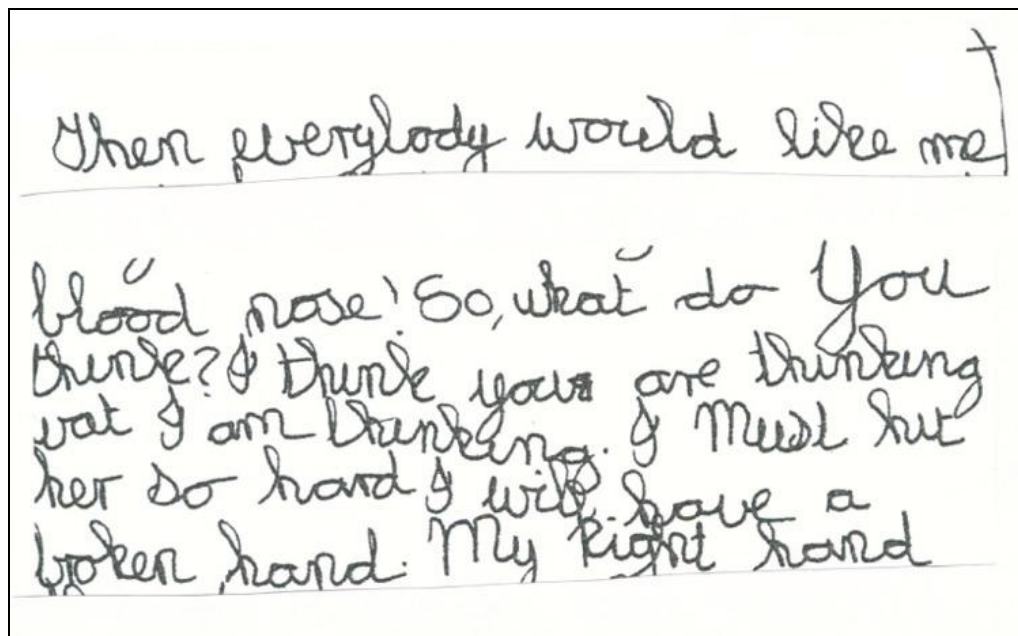 Then everybody would like me
blood nose! So, what do You
think? I think you are thinking
wat I am thinking. I Must hit
her so hard I will have a
broken hand. My Right hand